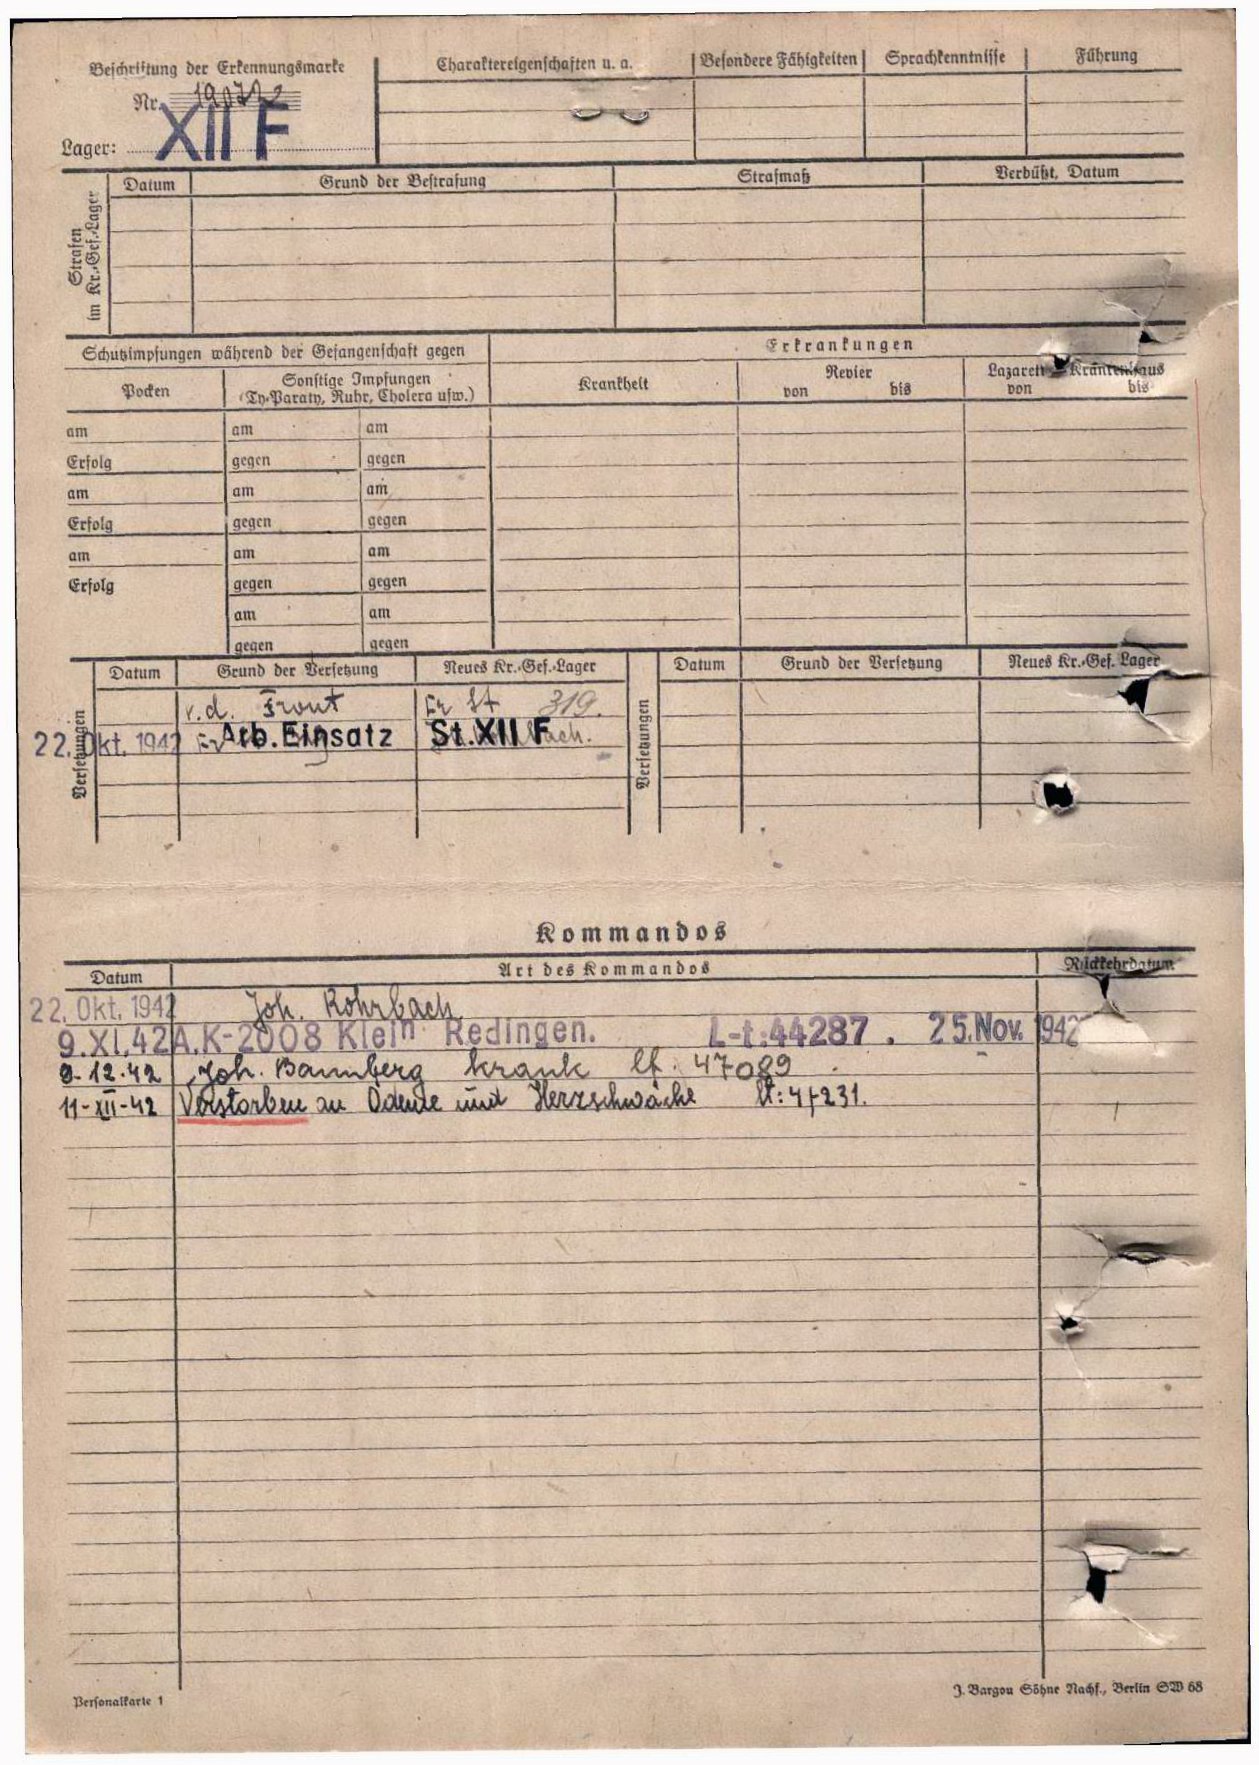 Beschriftung der Erkennungsmarke
Nr. 19072
Lager: XII F
Charaktereigenschaften u. a.
Besondere Fähigkeiten
Sprachkenntnisse
Führung
Strafen im Kr.-Gef.-Lager
Datum
Grund der Bestrafung
Strafmaß
Verbüßt, Datum
Schutzimpfungen während der Gefangenschaft gegen
Erkrankungen
Pocken
Sonstige Impfungen
(Ty-Paraty, Ruhr, Cholera usw.)
Krankheit
Revier
von bis
Lazarett Krankenhaus
von bis
am am am
Erfolg gegen gegen
am am am
Erfolg gegen gegen
am am am
Erfolg gegen gegen
am am
gegen gegen
Versetzungen
Datum Grund der Versetzung Neues Kr.-Gef.-Lager
v. d. Front St 319.
22. Okt. 1942 Arb. Einsatz St. XII F
Versetzungen
Datum Grund der Versetzung Neues Kr.-Gef. Lager
Kommandos
Datum Art des Kommandos Rückkehrdatum
22. Okt. 1942 Joh. Rohrbach
9. XI. 42 A.K-2008 Klein Redingen. L-t: 44287. 25. Nov. 1942
9-12-42 Joh. Bannberg krank lf. 47089
11-XII-42 Verstorben an Ödeme und Herzschwäche lt: 47231.
Personalkarte 1
J. Bargou Söhne Nachf., Berlin SW 68